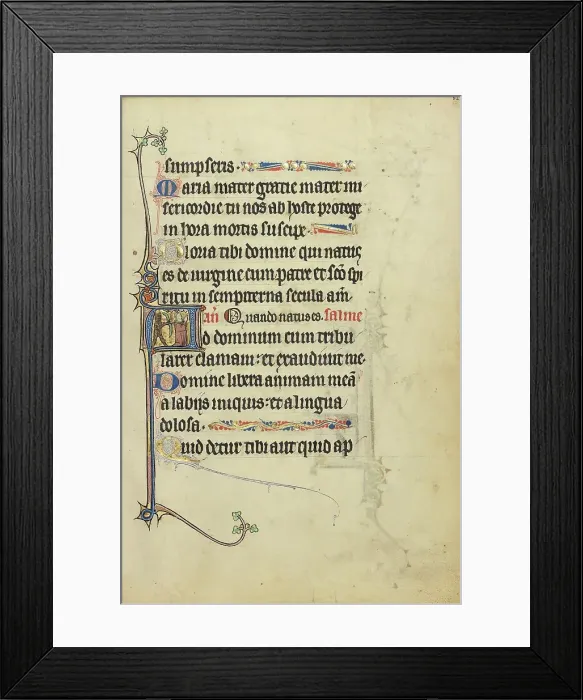 sumpseris.
Maria mater gratie mater mi
sericordie tu nos ab hoste protege
in hora mortis suscipe.
Gloria tibi domine qui natus
es de uirgine cum patre et sc̄o spi
ritu in sempiterna secula am̄
an̄ Quando natus es. salme
Ad dominum cum tribu
larer clamaui: et exaudiuit me.
Domine libera animam meā
a labijs iniquis: et a lingua
dolosa.
Quid detur tibi aut quid ap